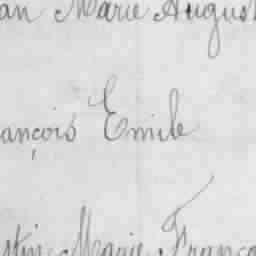 an Marie August
ançois Emile
stin Marie Franço